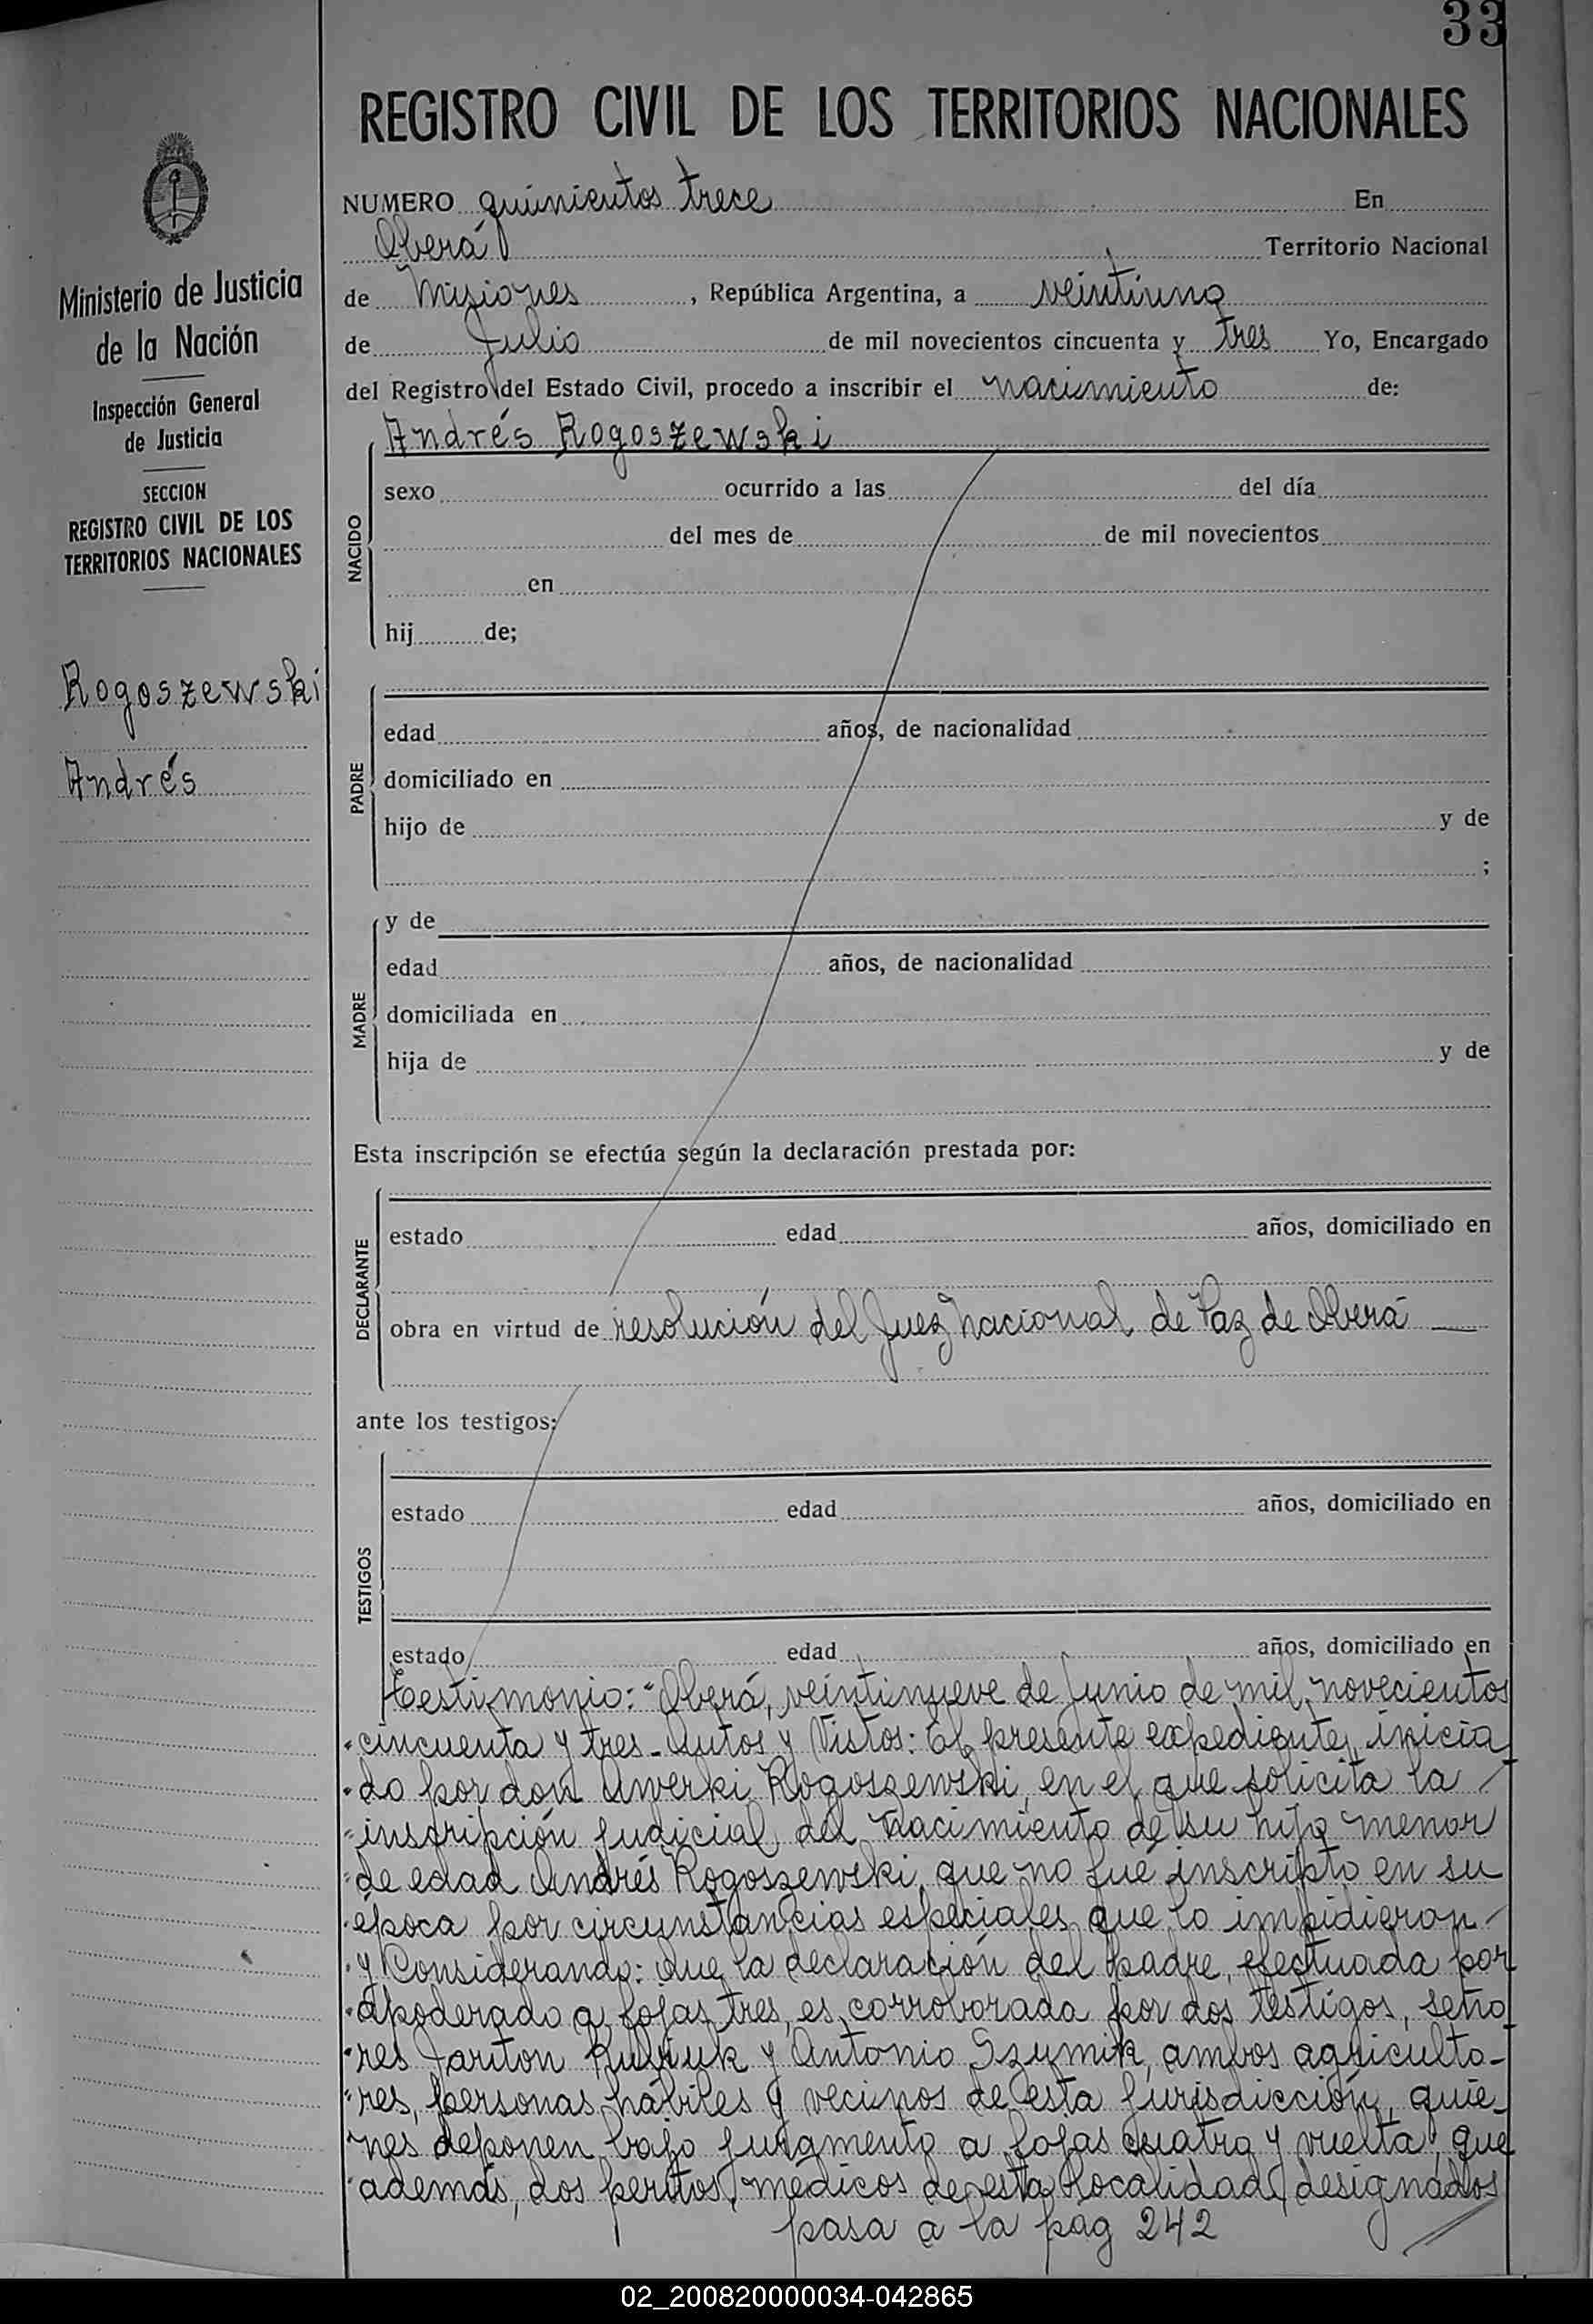 33
REGISTRO CIVIL DE LOS TERRITORIOS NACIONALES
Ministerio de Justicia
de la Nación
Inspección General
de Justicia
SECCION
REGISTRO CIVIL DE LOS
TERRITORIOS NACIONALES
Rogoszewski
Andrés
NUMERO quinientos trece En
Oberá Territorio Nacional
de Misiones, República Argentina, a veintiuno
de Julio de mil novecientos cincuenta y tres Yo, Encargado
del Registro del Estado Civil, procedo a inscribir el nacimiento de:
Andrés Rogoszewski
NACIDO
sexo ocurrido a las del día
del mes de de mil novecientos
en
hij de;
PADRE
edad años, de nacionalidad
domiciliado en
hijo de y de
;
MADRE
y de
edad años, de nacionalidad
domiciliada en
hija de y de
Esta inscripción se efectúa según la declaración prestada por:
DECLARANTE
estado edad años, domiciliado en
obra en virtud de resolución del Juez Nacional de Paz de Oberá —
ante los testigos:
TESTIGOS
estado edad años, domiciliado en
estado edad años, domiciliado en
Testimonio: "Oberá, veintinueve de Junio de mil novecientos
"cincuenta y tres - Autos y Vistos: El presente expediente, inicia
"do por don Awerki Rogoszewski, en el que solicita la
"inscripción judicial del nacimiento de su hijo menor
"de edad Andrés Rogoszewski, que no fué inscripto en su
"época por circunstancias especiales que lo impidieron
"y Considerando: Que la declaración del padre, efectuada por
"apoderado a fojas tres, es corroborada por dos testigos, seño
"res Jariton y Antonio Szymik, ambos agriculto-
"res, personas hábiles y vecinos de esta jurisdicción, quie-
"nes deponen bajo juramento a fojas cuatro y vuelta, que
"además, dos peritos médicos de esta localidad, designados
pasa a la pág 242
02_200820000034-042865